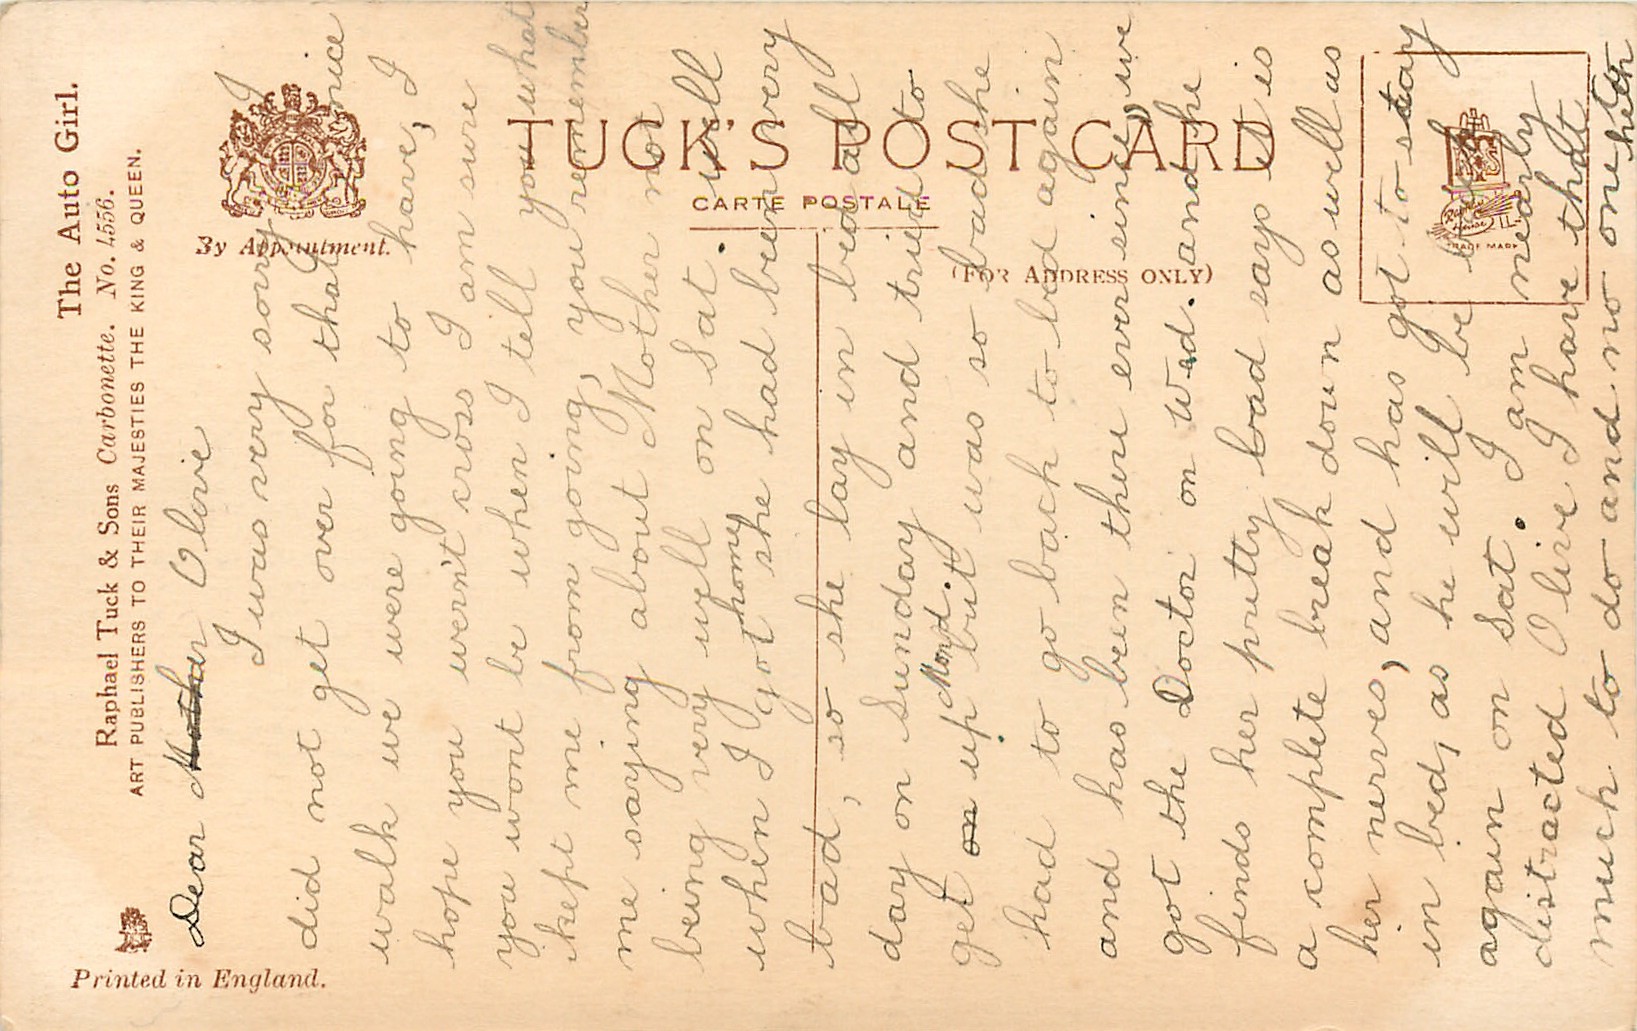 The Auto Girl.
Raphael Tuck & Sons Carbonette. No. 4556.
ART PUBLISHERS TO THEIR MAJESTIES THE KING & QUEEN.
Printed in England.
By Appointment.
TUCK'S POST CARD
CARTE POSTALE
(FOR ADDRESS ONLY)
Raphael House
TRADE MARK
Dear Mother Olive
I was very sorry I
did not get over for that nice
walk we were going to have, I
hope you wern't cross I am sure
you wont be when I tell you what
kept me from going, you remember
me saying about Mother not
being very well on Sat. well
when I got home she had been very
bad, so she lay in bed all
day on Sunday and tried to
get on up Mond. but was so bad she
had to go back to bed again
and has been there ever since, we
got the Doctor on Wed. and he
finds her pretty bad says it is
a complete break down as well as
her nerves, and has got to stay
in bed, as he will be back
again on Sat. I am nearly
distracted Olive I have that
much to do and no one to